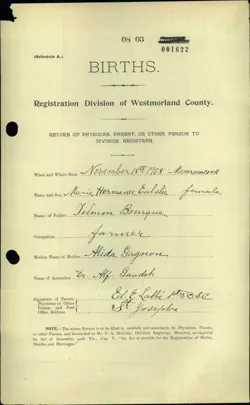 08 03
001622
(Schedule A.)
BIRTHS.
Registration Division of Westmorland County.
RETURN OF PHYSICIAN, PARENT, OR OTHER PERSON TO
DIVISION REGISTRAR.
When and Where Born November 18th 1908 Memramcook
Name and Sex Marie Hermance Eulalie female
Name of Father Tilmon Bourque
Occupation farmer
Maiden Name of Mother Alida Gagnon
Name of Attendant Dr. Alf. Gaudet
Signature of Parent, Physician or Other Person, and Post Office Address
Ed. E. Labbé Ptre C.S.C
St Josephs
NOTE.—The above Return is to be filled in carefully and accurately by Physician, Parent, or other Person, and forwarded to Mr. F. A. McCully, Division Registrar, Moncton, as required by Act of Assembly, Cap. V. "An Act to provide for the Registration of Births, Deaths and Marriages."